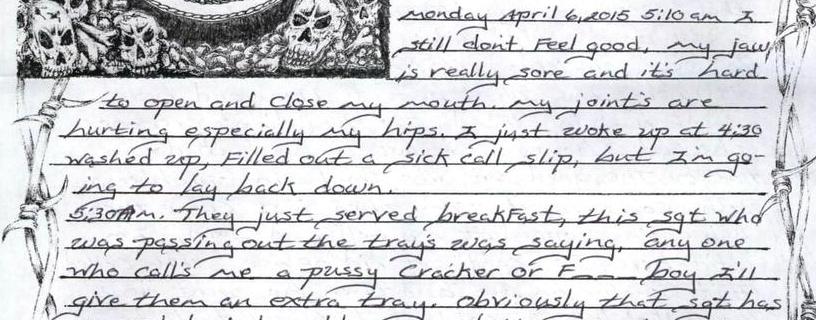 monday April 6, 2015 5:10 am I
still dont Feel good, my jaw
is really sore and it's hard
to open and close my mouth. my joint's are
hurting especially my hips. I just woke up at 4:30
washed up, Filled out a sick call slip, but I'm go-
ing to lay back down.
5:30Am. They just served breakFast, this sgt who
was passing out the tray's was saying, any one
who call's me a pussy Cracker or F___ boy I'll
give them an extra tray. obviously that sgt has